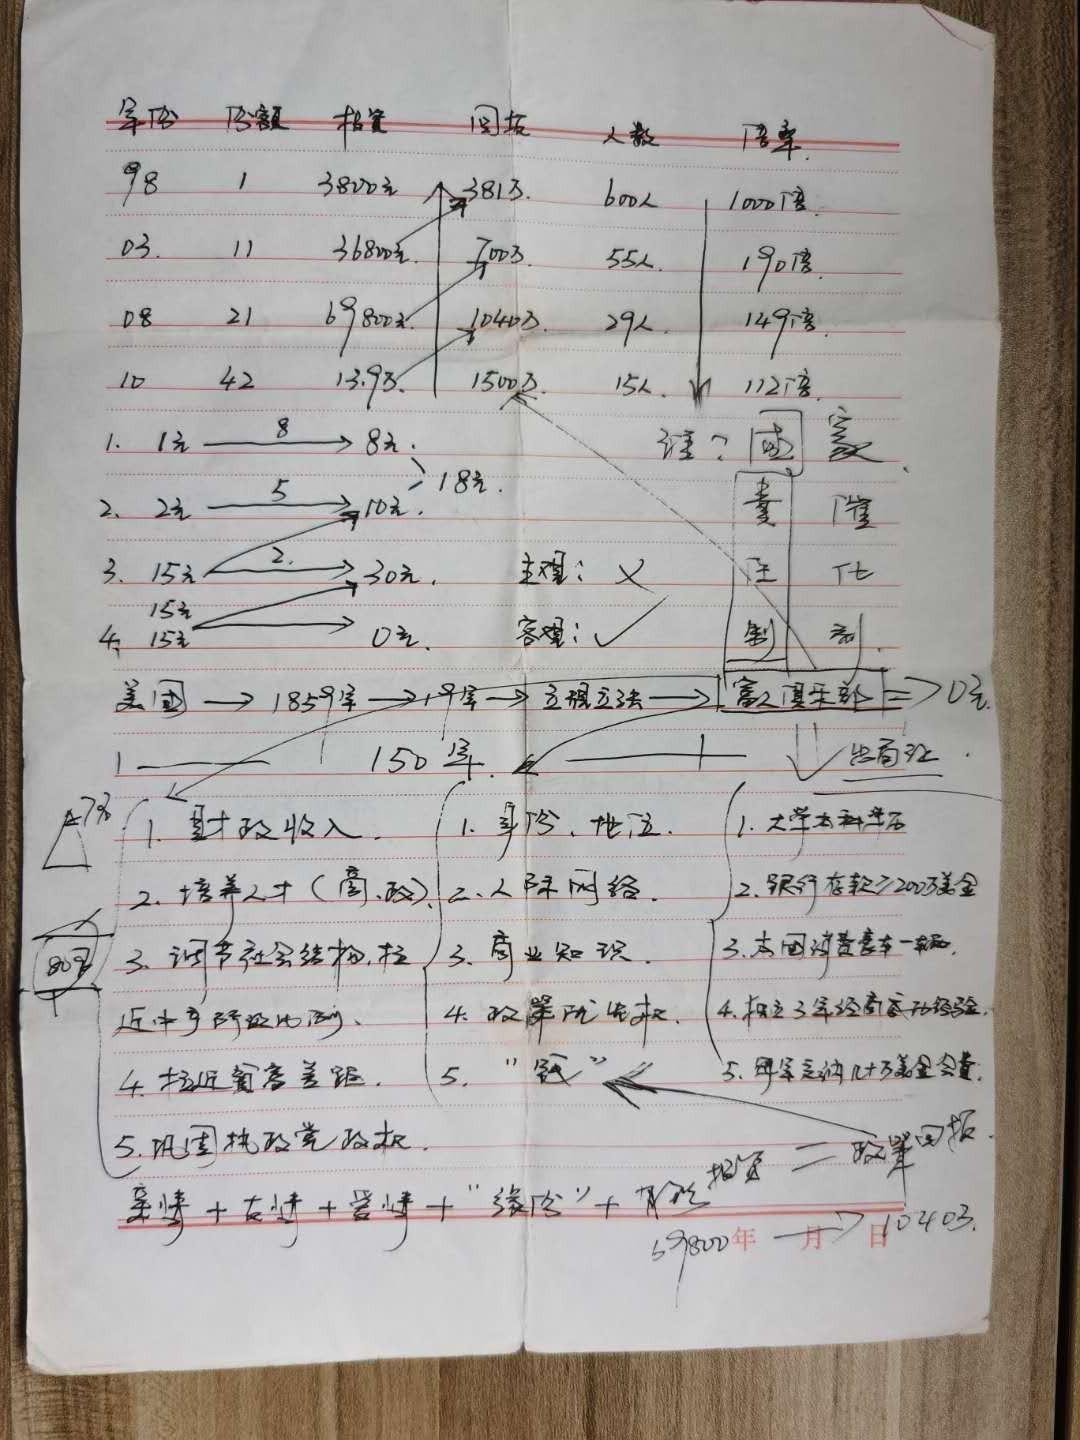 年份 份额 投资 回报 人数 倍率
98 1 3800元 381万 600人 1000倍
03. 11 36800元 700万. 55人. 190倍.
08 21 69800元. 1040万. 29人. 149倍
10 42 13.9万. 1500万. 15人. 112倍.
1. 1元 8 8元.
谁? 国 家
18元.
2. 2元 5 10元.
责 催
3. 15元 2. 30元. 主观: ×
任 化
15元
4. 15元 0元. 客观: ✓
制 剂.
美国 → 1859年 → 19年 → 立规立法 → 富人俱乐部 => 0元.
1 150年. 出局班.
1. 财政收入. 1. 身份、地位. 1. 大学本科学历
2. 培养人才(商、政). 2. 人际网络. 2. 银行存款≥200万美金
80% 3. 调节社会结构,拉 3. 商业知识. 3. 本国消费豪车一辆.
近中产阶级比例、 4. 政策优先权. 4. 独立3年经商成功经验.
4. 拉近贫富差距. 5. "钱" 5. 每年交纳几十万美金会费.
5. 巩固执政党政权.
亲情 + 友情 + 爱情 + "缘份" + 投资 = 政策回报.
69800 年 月 日 1040万.